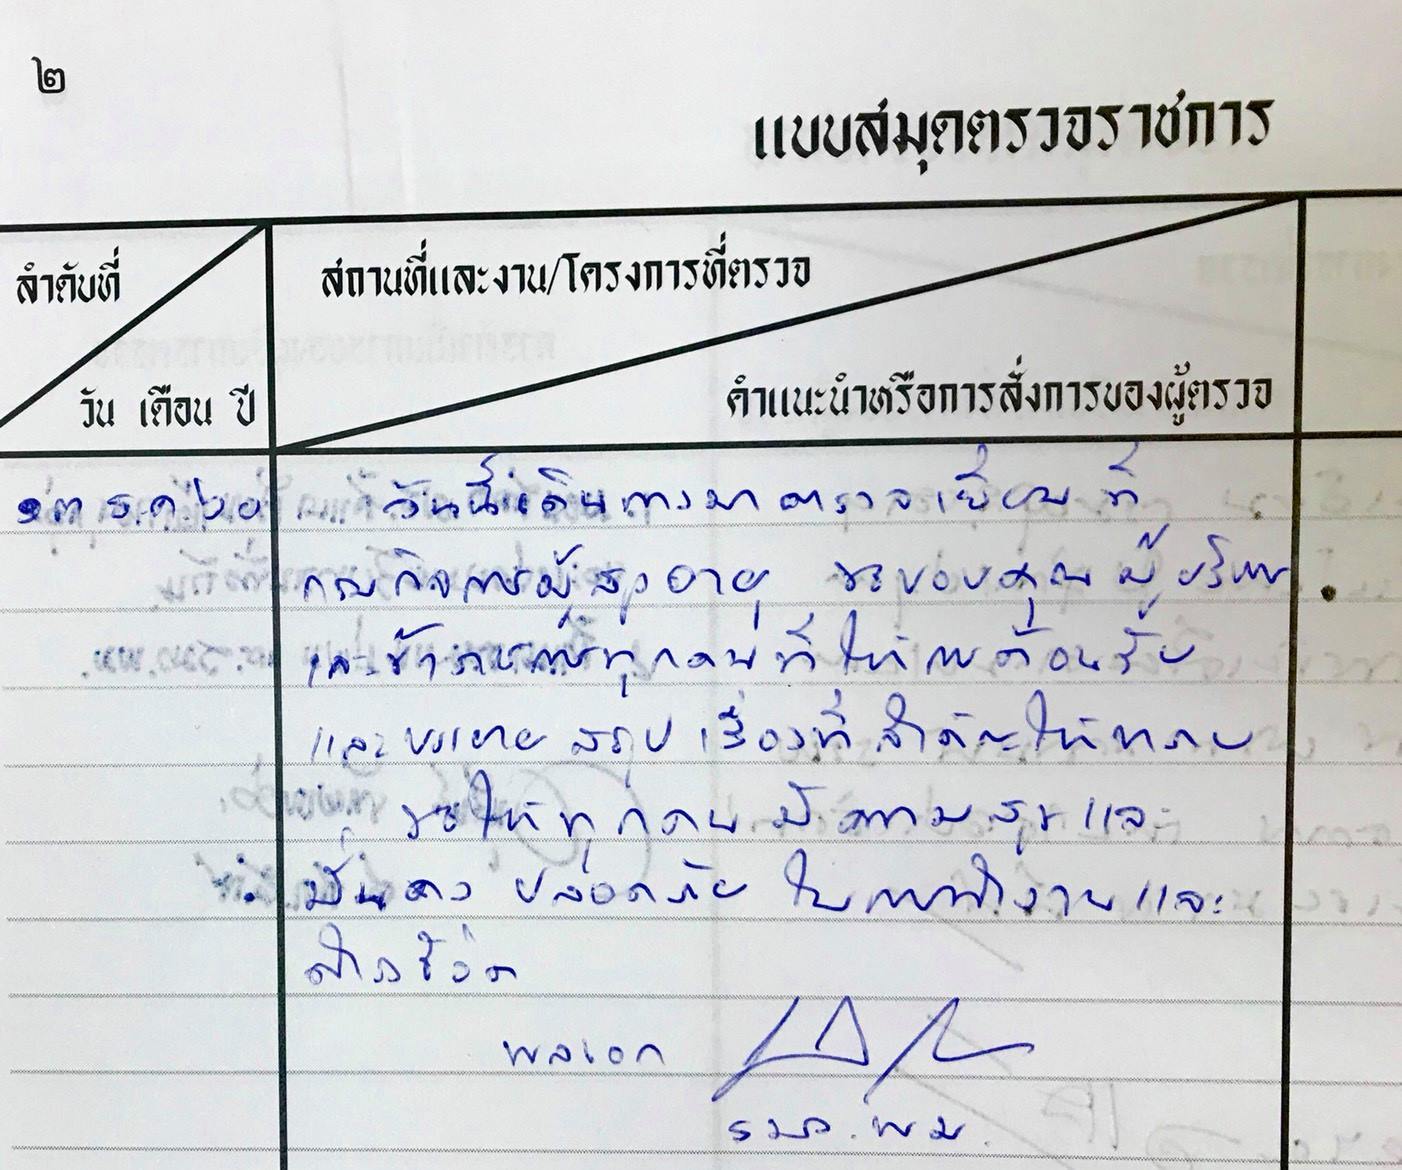 ๒
แบบสมุดตรวจราชการ
ลำดับที่
วัน เดือน ปี
สถานที่และงาน/โครงการที่ตรวจ
คำแนะนำหรือการสั่งการของผู้ตรวจ
๑๓ ธ.ค. ๖๐
วันนี้เดินทางมาตรวจเยี่ยมที่
กรมกิจการผู้สูงอายุ ขอขอบคุณผู้บริหาร
และข้าราชการทุกคนที่ให้การต้อนรับ
และบรรยายสรุปเรื่องที่สำคัญให้ทราบ
ขอให้ทุกคนมีความสุขและ
มั่นคง ปลอดภัย ในการทำงานและ
ดำรงชีวิต
พลเอก
รมว.พม.